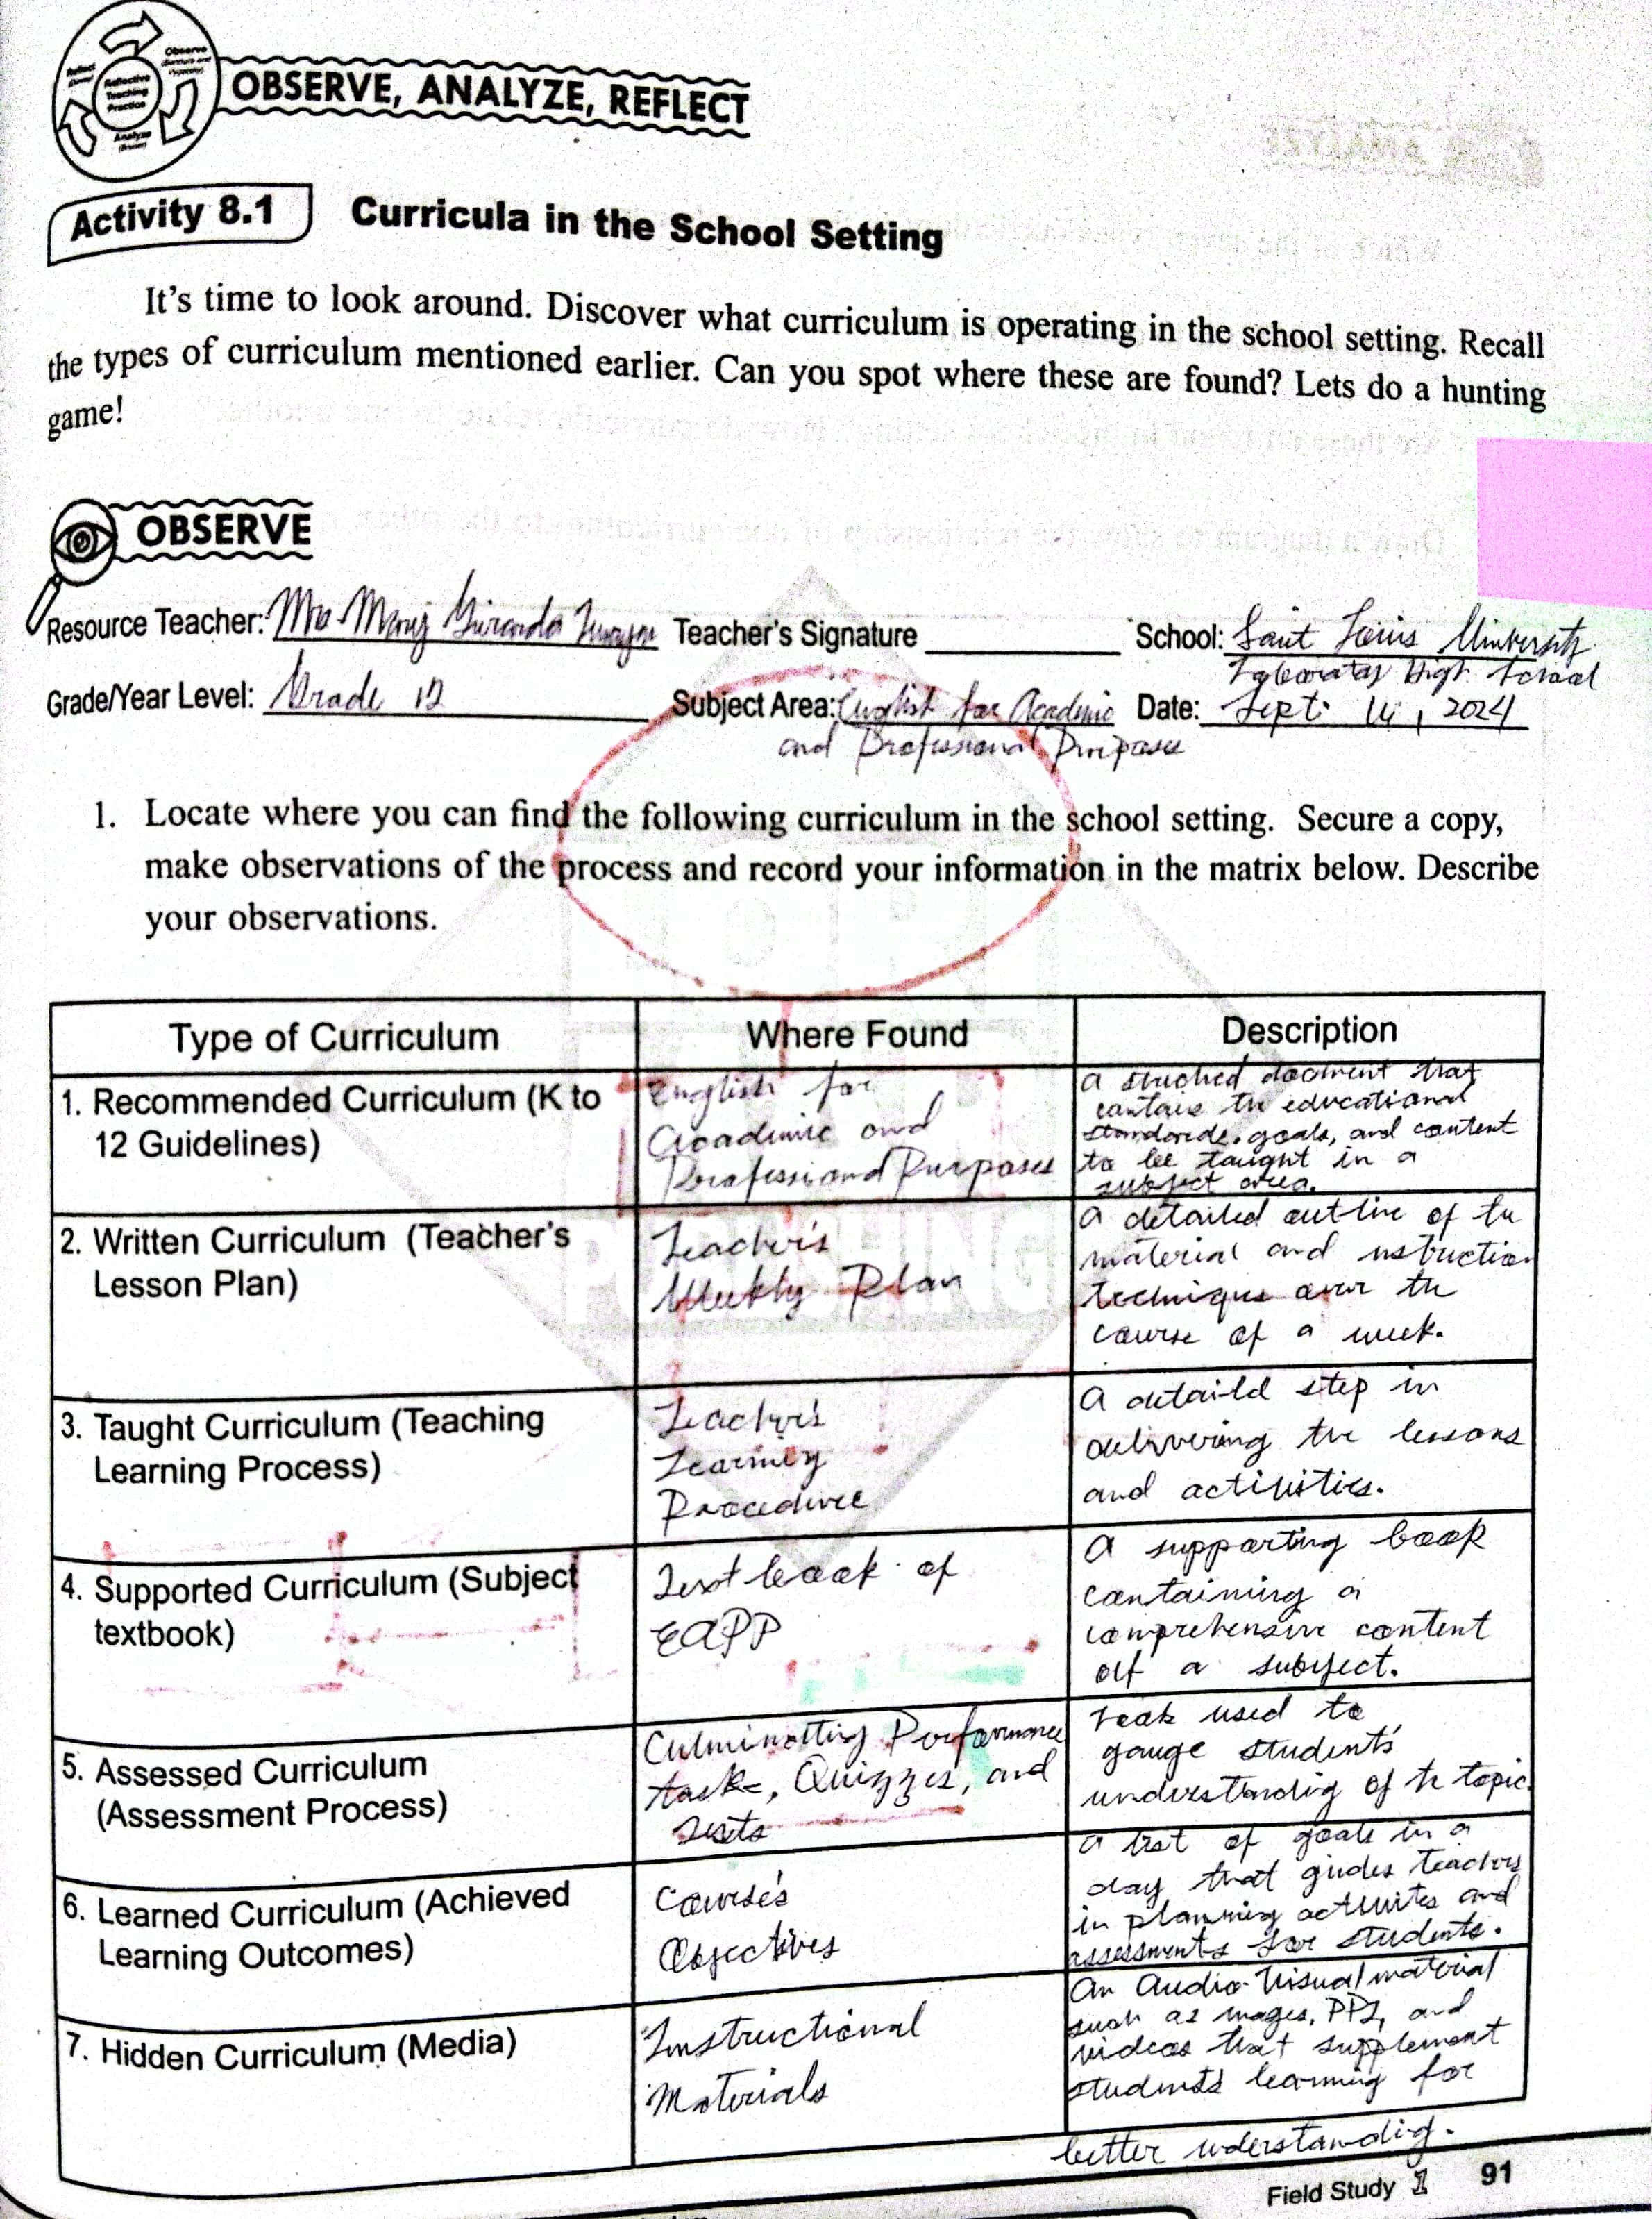 Reflect
Observe
Reflective
Teaching
Practice
Analyze
OBSERVE, ANALYZE, REFLECT
Activity 8.1 Curricula in the School Setting
It's time to look around. Discover what curriculum is operating in the school setting. Recall
the types of curriculum mentioned earlier. Can you spot where these are found? Lets do a hunting
game!
OBSERVE
Resource Teacher: Teacher's Signature School: Saint Louis University
Laboratory High School
Grade/Year Level: Grade 12 Subject Area: English for Academic Date: Sept. 14, 2024
and Professional Purposes
1. Locate where you can find the following curriculum in the school setting. Secure a copy,
make observations of the process and record your information in the matrix below. Describe
your observations.
Type of Curriculum Where Found Description
1. Recommended Curriculum (K to
12 Guidelines)
English for
Academic and
Professional Purposes
a document that
contains the educational
standards, goals, and content
to be taught in a
subject area.
2. Written Curriculum (Teacher's
Lesson Plan)
Teacher's
Weekly Plan
A detailed outline of the
material and instruction
techniques over the
course of a week.
3. Taught Curriculum (Teaching
Learning Process)
Teacher's
Learning
Procedure
A detaild step in
delivering the lessons
and activities.
4. Supported Curriculum (Subject
textbook)
Textbook of
EAPP
A supporting book
containing a
comprehensive content
of a subject.
5. Assessed Curriculum
(Assessment Process)
Culminatting Performance
tasks, Quizzes, and
Tests
used to
gauge students'
understanding of the topic.
6. Learned Curriculum (Achieved
Learning Outcomes)
Course's
Objectives
A list of goals in a
day that guides teachers
in planning activites and
assessments for students.
7. Hidden Curriculum (Media)
Instructional
Materials
An Audio-Visual material
such as images, PPT, and
videos that supplement
students learning for
better understandig.
Field Study 1 91